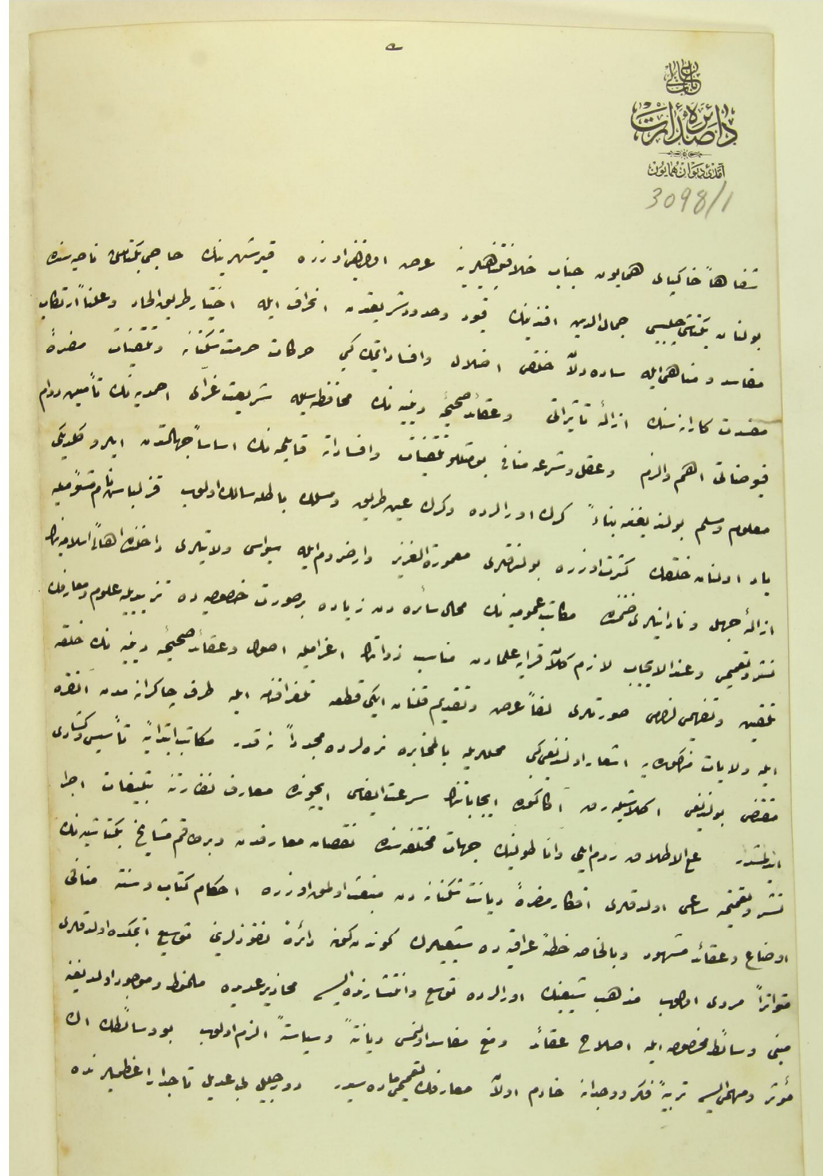 باب عالی
دائرهٔ صدارت
آمدی دیوان همایون
3098/1
شفاهاً خاکپای همایون جناب خلافتپناهیلرینه عرض اولندیغی اوزره قیرشهرینك حاجی بکتاش ناحیه سنده
بولنان بکتاشی چلبیسی جمال الدین افندینك قیود وحدود شریعتدن انحراف ایله اختیار طریق الحاد وعلناً ارتکاب
مفاسد ومناهی ایله ساده دلان خلقی اضلال وافساد ایتمك کبی حرکات حرمت شکنانه وتلقینات مضرهٔ
مفسدت کارانه سنك ازالهٔ تأثیراتی وعقائد صحیحهٔ دینیه نك محافظه سیله شریعت غرای احمدیه نك تأمین دوام
فیوضاتی اهم والزم وعقل وشرعه منافی بو مثللو تلقینات وافساداته قاپلمه نك اساساً جهالتدن ایلرو کلدیکی
معلوم ومسلم بولندیغنه بناءً كرك اورالرده وكرك عین طریق ومسلك باطله سالك اولوب قزلباش نام مشئومیله
یاد اولنان خلقك کثرت اوزره بولندقلری معمورة العزیز وارضروم ایله سیواس ولایتلری داخلنده اهالئ اسلامیه نك
ازالهٔ جهل ونادانیلری ضمننده مکاتب عمومیه نك محال سائره دن زیاده بر صورت خصوصیه ده تزییدیله علوم ومعارفك
نشر وتعمیمی وعند الایجاب لازم کلان قرالره علمادن مناسب ذواتك اعزامیله اصول وعقائد صحیحهٔ دینیه نك خلقه
تلقین وتفهیمی صورتلری لفاً عرض وتقدیم قلنان ایکی قطعه تلغرافنامه ایله طرف چاکرانه مدن آنقره
ایله ولایات مذکوره یه اشعار اولندیغی کبی محللریله بالمخابره نره لرده مجدداً نه قدر مکاتب ابتدائیه تأسیس وکشادی
مقتضی بولندیغی اکلاشیله رق اکا کوره ایجاباتنك سرعت ایفاسی ایچون ده معارف نظارتنه تبلیغات اجرا
ایدلمشدر علی الاطلاق روم ایلی واناطولینك جهات مختلفه سنده نقصان معارفدن وبر طاقم مشایخ بکتاشیه نك
نشر وتعمیمنه ساعی اولدقلری افکار مضرهٔ دیانت شکنانه دن منبعث اولمق اوزره احکام کتاب وسنته منافی
اوضاع وعقائد مشهود وبالخاصه خطهٔ عراقیه ده شیعیلرك کوندن کونه دائرهٔ نفوذلرینی توسیع ایتمکده اولدقلری
متواتراً مروی اولوب مذهب شیعینك اورالرده توسع وانتشارنده ایسه محاذیر عدیده ملحوظ وموجود اولدیغنه
مبنی وسائط مخصوصه ایله اصلاح عقائد ودفع مفاسد اولنمسی دیانةً وسیاسةً الزم اولوب بو وسائطك اك
مؤثر ومهمی ایسه تربیهٔ فکر ووجدانه خادم اولان معارفك تعمیمی ماده سیدر دور جلیل بی عدیل تاجدار اعظمیلرنده